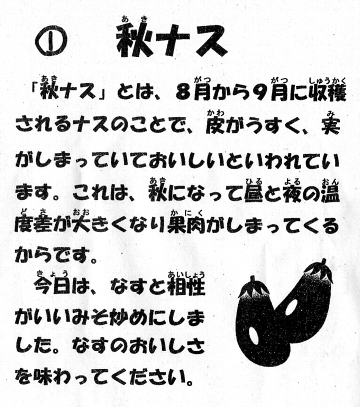 ① 秋ナス
「秋ナス」とは、8月から9月に収穫
されるナスのことで、皮がうすく、実
がしまっていておいしいといわれてい
ます。これは、秋になって昼と夜の温
度差が大きくなり果肉がしまってくる
からです。
今日は、なすと相性
がいいみそ炒めにしま
した。なすのおいしさ
を味わってください。